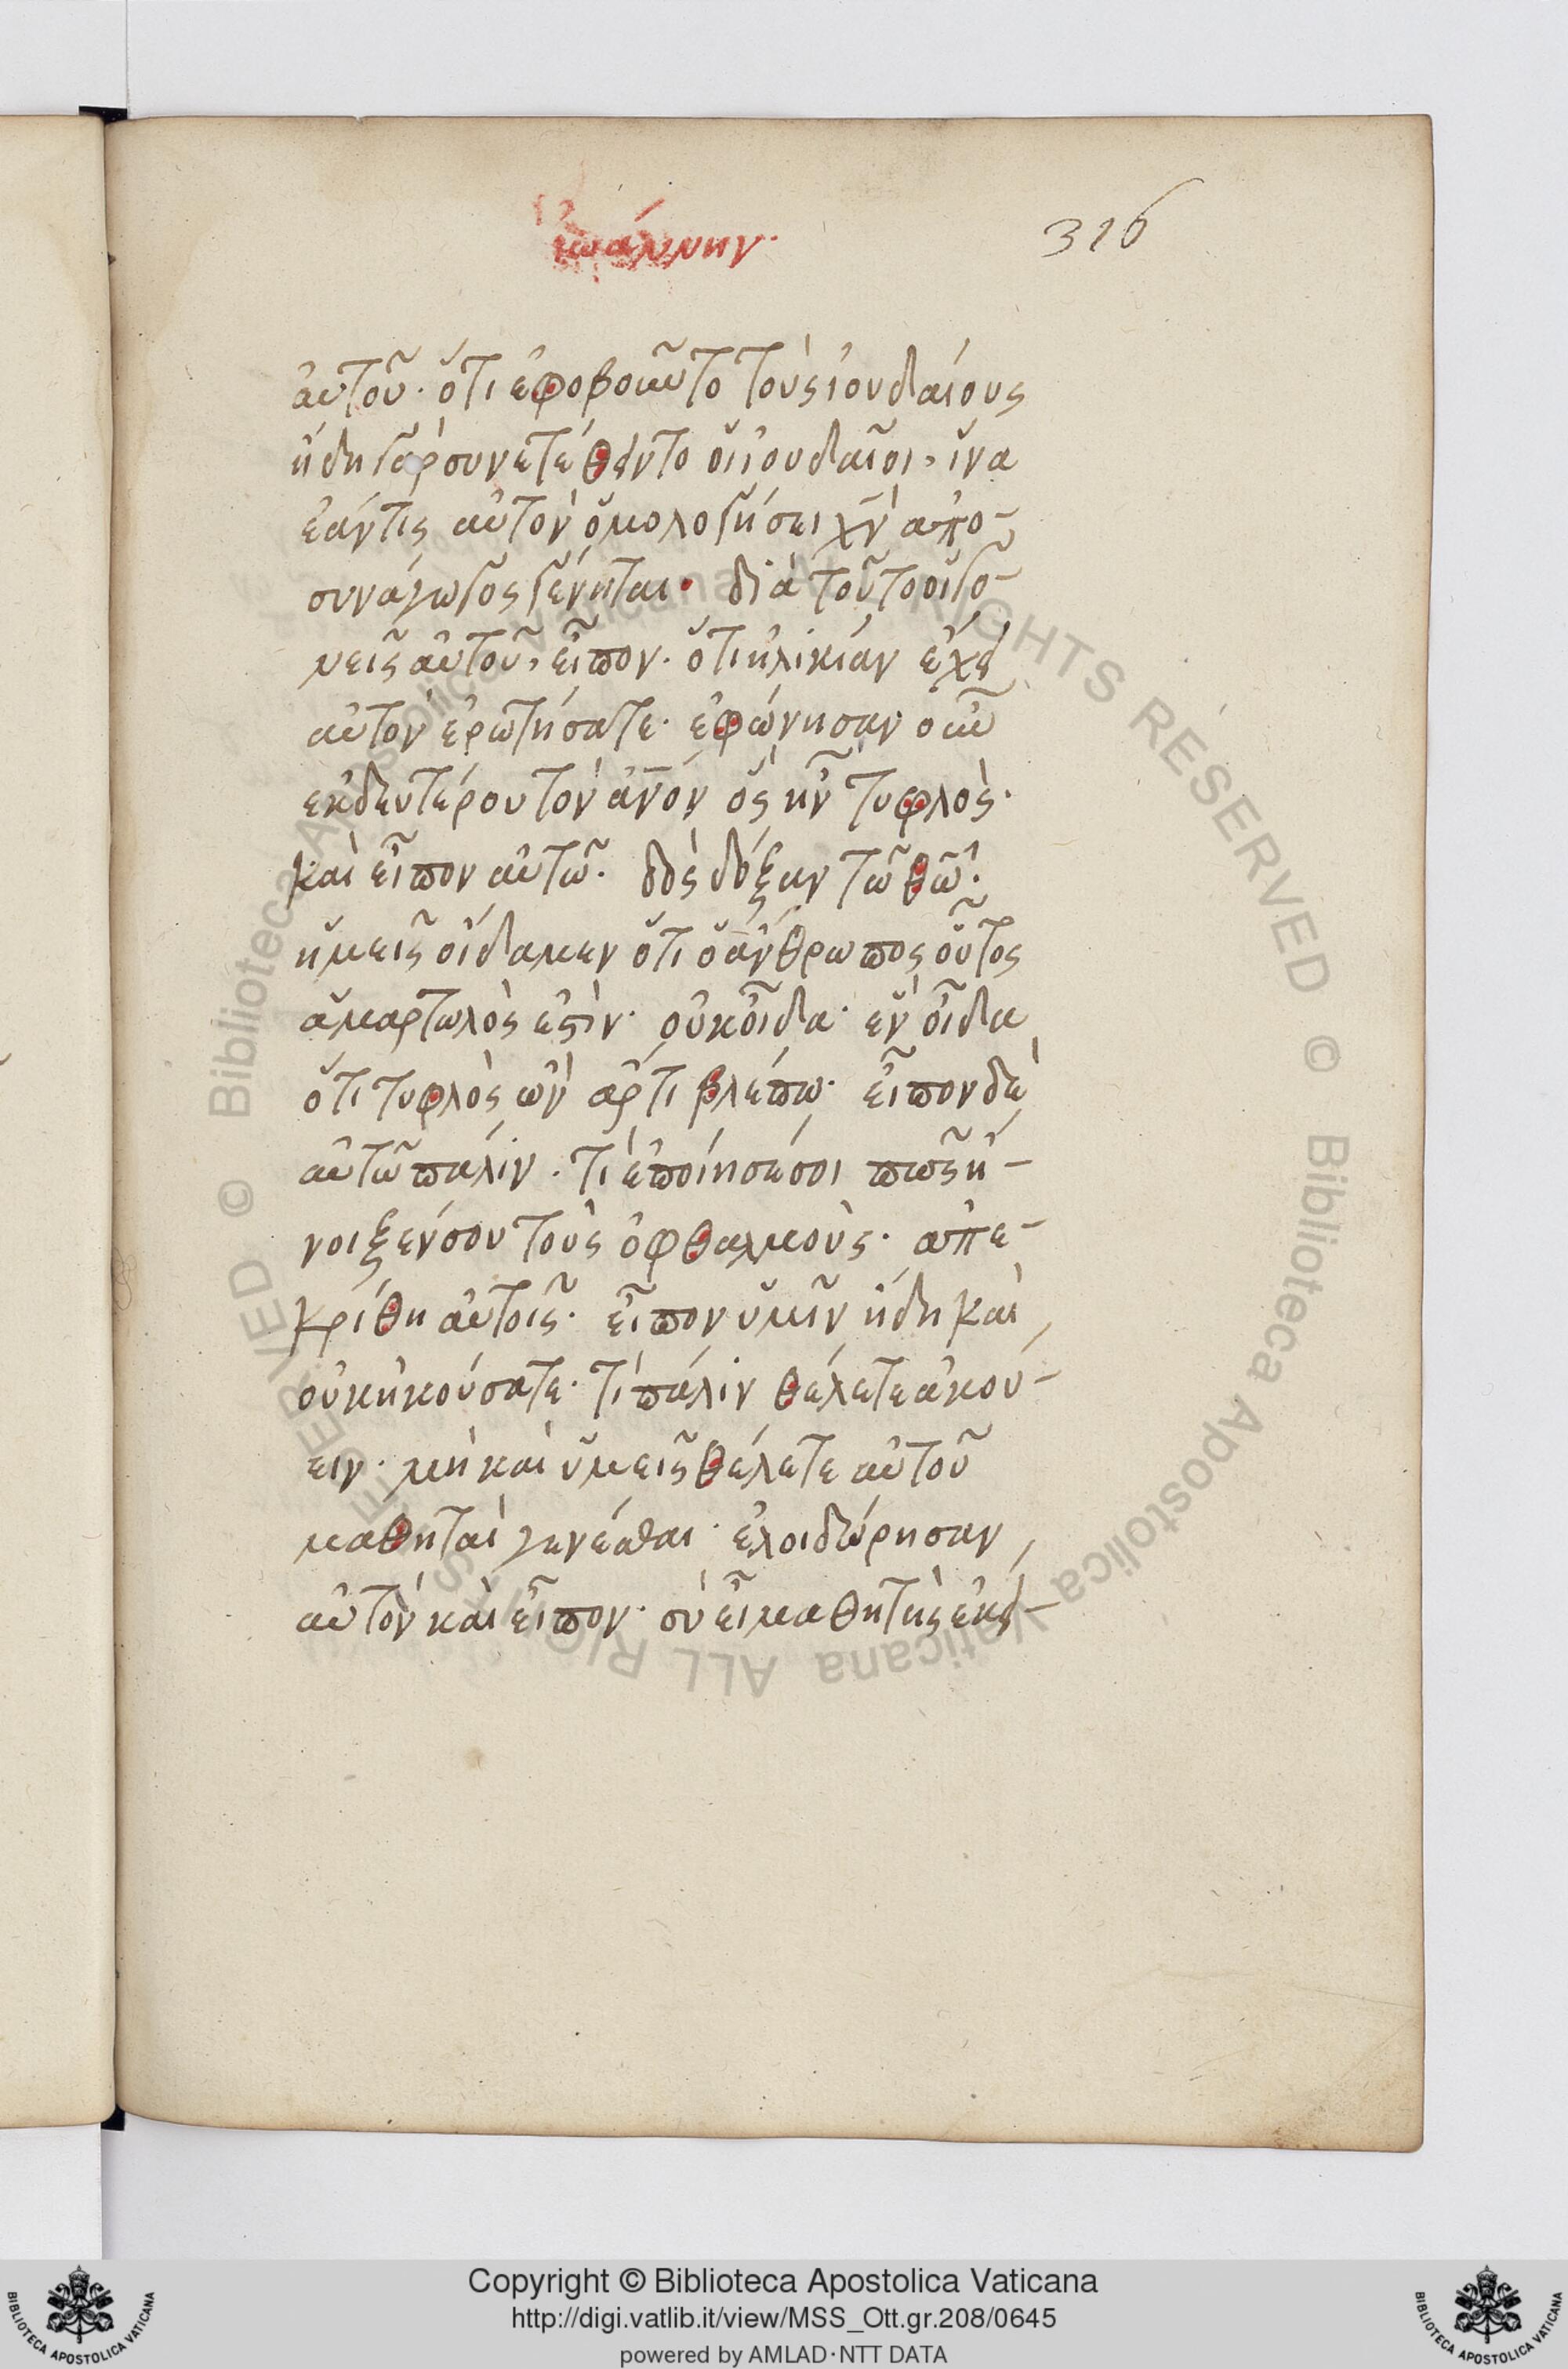 ἰωάννην·
316
αὐτοῦ· ὅτι ἐφοβοῦντο τοὺς ἰουδαίους
ἤδη γὰρ συνετέθειντο οἱ ἰουδαῖοι, ἵνα
ἐάν τις αὐτὸν ὁμολογήσει χν̄ ἀπο-
συνάγωγος γένηται· διὰ τοῦτο οἱ γο-
νεῖς αὐτοῦ, εἶπον· ὅτι ἡλικίαν ἔχει
αὐτὸν ἐρωτήσατε· ἐφώνησαν οὖν
ἐκ δευτέρου τὸν ἀνο̄ν ὃς ἦν τυφλὸς·
καὶ εἶπον αὐτῶ· δὸς δόξαν τῶ θω̄·
ἡμεῖς οἴδαμεν ὅτι ὁ ἄνθρωπος οὗτος
ἁμαρτωλὸς ἐστὶν· οὐκ οἶδα· ἓν οἶδα
ὅτι τυφλὸς ὢν ἄρτι βλέπω· εἶπον δὲ
αὐτῶ πάλιν· τί ἐποίησέ σοι πῶς ἤ-
νοιξέν σου τοὺς ὀφθαλμούς· ἀπε-
κρίθη αὐτοῖς· εἶπον ὑμῖν ἤδη καὶ
οὐκ ἠκούσατε· τί πάλιν θέλετε ἀκού-
ειν· μὴ καὶ ὑμεῖς θέλετε αὐτοῦ
μαθηταὶ γενέσθαι· ἐλοιδώρησαν
αὐτὸν καὶ εἶπον· σὺ εἶ μαθητὴς ἐκεί-
© Biblioteca Apostolica Vaticana ALL RIGHTS RESERVED © Biblioteca Apostolica Vaticana ALL RIGHTS RESERVED
Copyright © Biblioteca Apostolica Vaticana
http://digi.vatlib.it/view/MSS_Ott.gr.208/0645
powered by AMLAD·NTT DATA
BIBLIOTECA APOSTOLICA VATICANA
BIBLIOTECA APOSTOLICA VATICANA